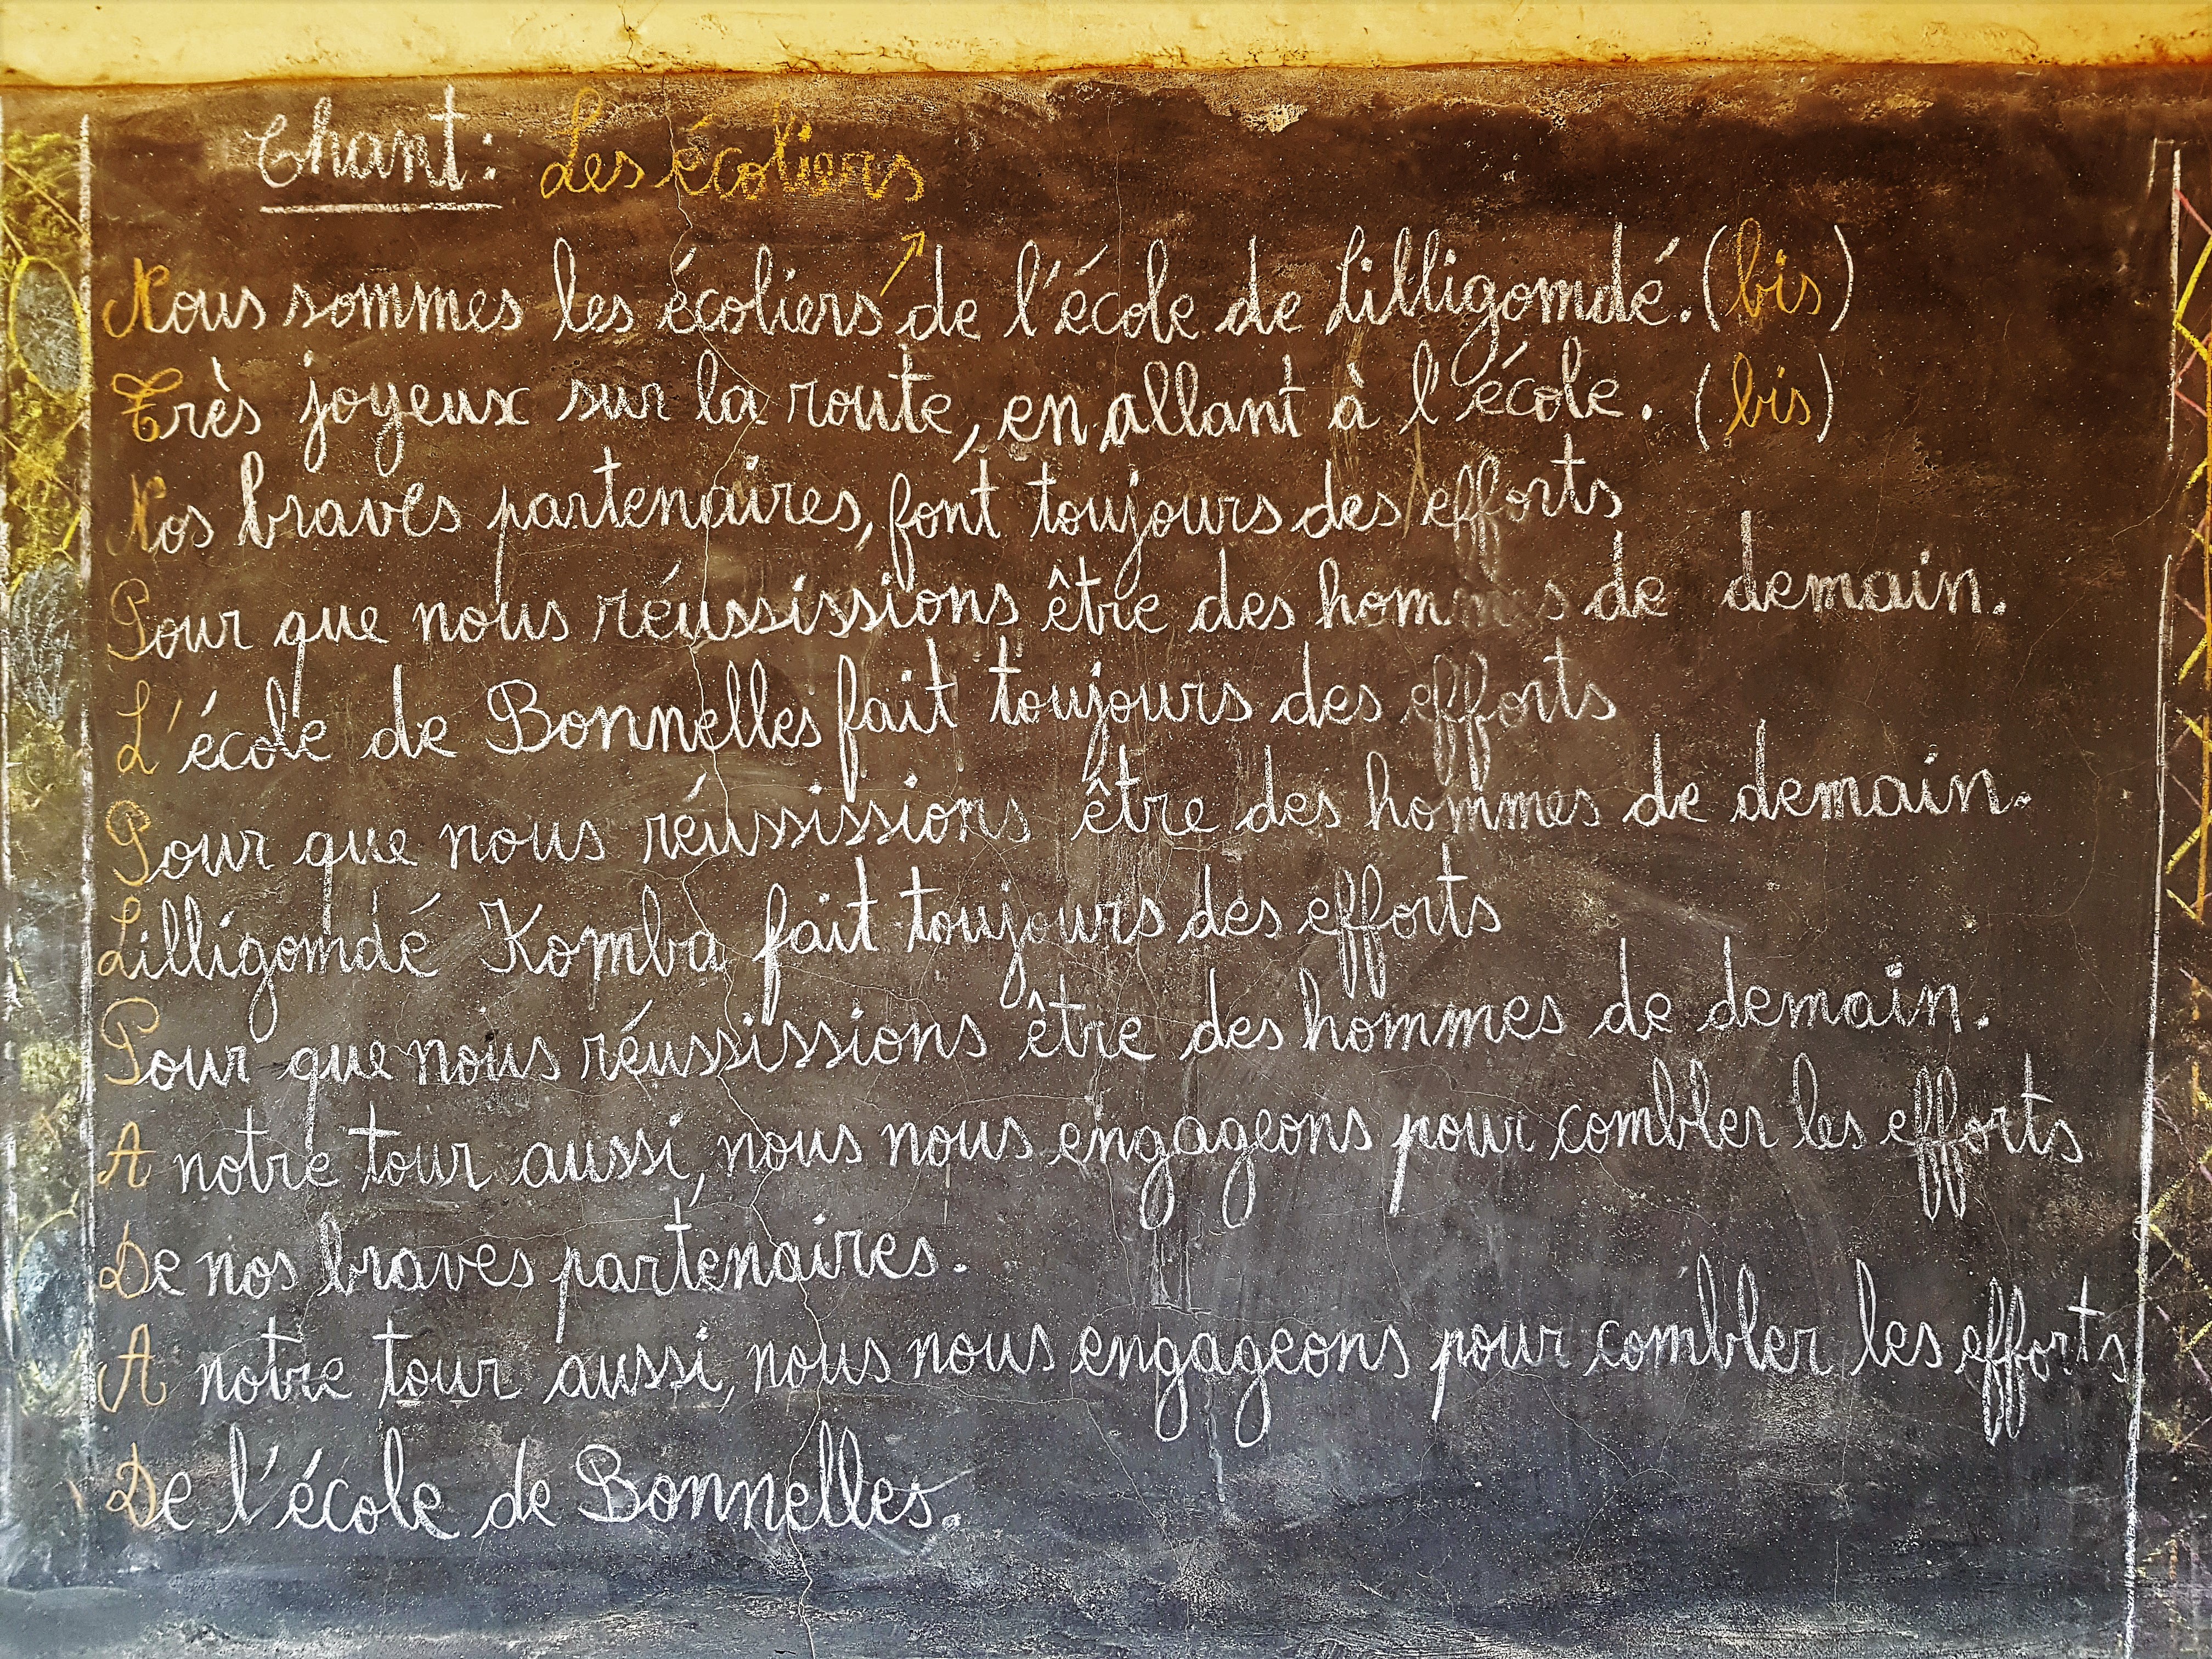 Chant: Les écoliers
Nous sommes les écoliers de l'école de Lilligomdé. (bis)
Très joyeux sur la route, en allant à l'école. (bis)
Nos braves partenaires, font toujours des efforts
Pour que nous réussissions être des hommes de demain.
L'école de Bonnelles fait toujours des efforts
Pour que nous réussissions être des hommes de demain.
Lilligomdé Komba fait toujours des efforts
Pour que nous réussissions être des hommes de demain.
A notre tour aussi, nous nous engageons pour combler les efforts
De nos braves partenaires.
A notre tour aussi, nous nous engageons pour combler les efforts
De l'école de Bonnelles.